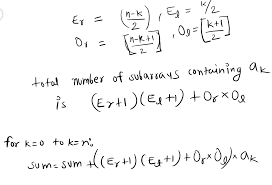 Er = (n-k/2) , El = k/2
Or = [n-k+1/2] , Ol = [k+1/2]
total number of subarrays containing ak
is (Er+1)(El+1) + Or×Ol
for k=0 to k=n:
sum = sum + ((Er+1)(El+1) + Or×Ol) × ak